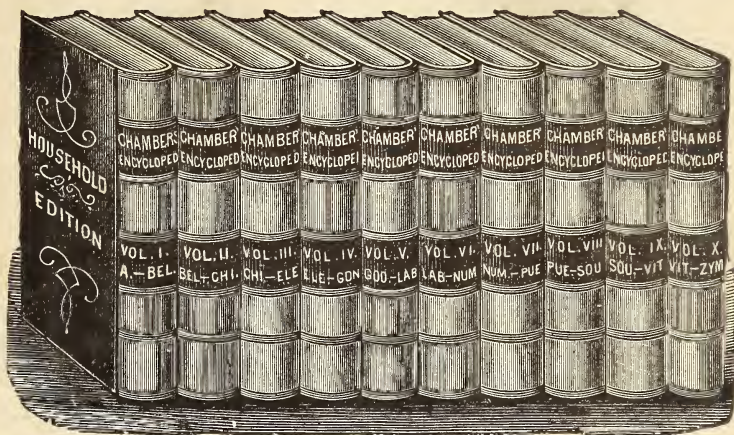 HOUSEHOLD
EDITION
CHAMBERS
ENCYCLOPED
VOL. I.
A.—BEL.
CHAMBER'
ENCYCLOPED
VOL. II.
BEL—CHI.
CHAMBER'
ENCYCLOPED
VOL. III.
CHI—ELE
CHAMBER'
ENCYCLOPEI
VOL. IV.
ELE—GON
CHAMBER'
ENCYCLOPED
VOL. V.
GOO.—LAB
CHAMBER'
ENCYCLOPED
VOL. VI.
LAB—NUM
CHAMBER'
ENCYCLOPED
VOL. VII.
NUM.—PUE
CHAMBER'
ENCYCLOPEI
VOL. VIII
PUE-SOU
CHAMBER'
ENCYCLOPED
VOL. IX.
SOU.—VIT
CHAMBE
ENCYCLOPE
VOL. X.
VIT—ZYM